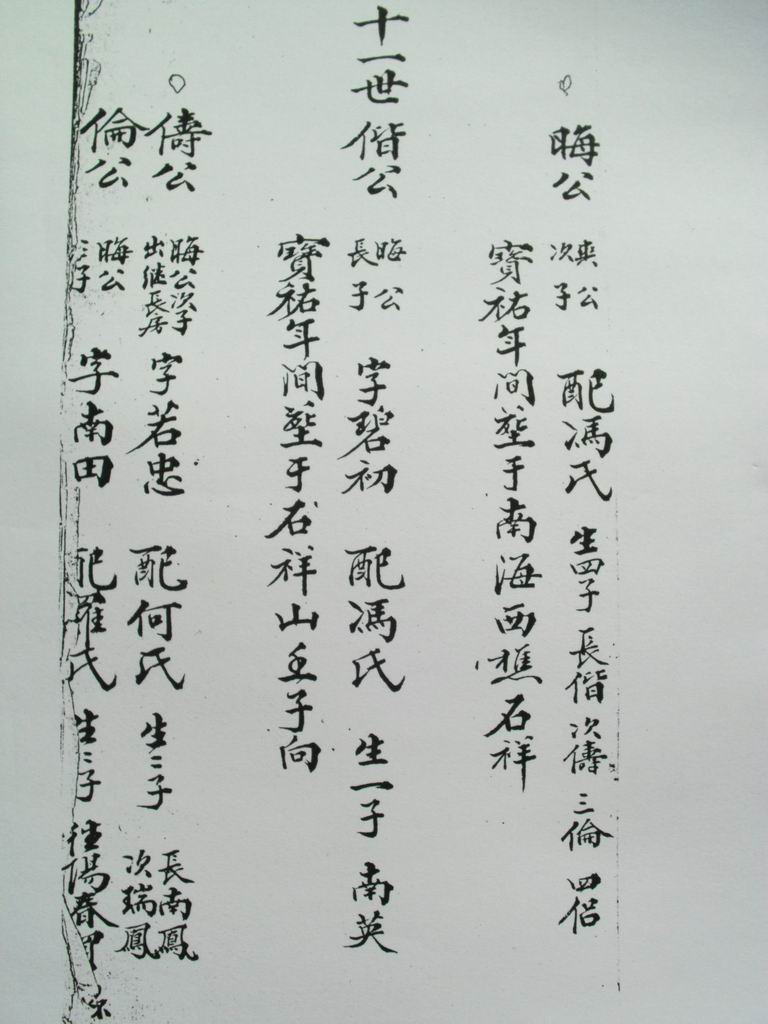 晦公 爽公次子 配馮氏 生四子 長偕 次儔 三倫 四侶
寶祐年間塟于南海西樵石祥
十一世 偕公 晦公長子 字碧初 配馮氏 生一子 南英
寶祐年間塟于石祥山壬子向
儔公 晦公次子出继長房 字若忠 配何氏 生二子 長南鳳 次瑞鳳
倫公 晦公三子 字南田 配羅氏 生二子 陽春